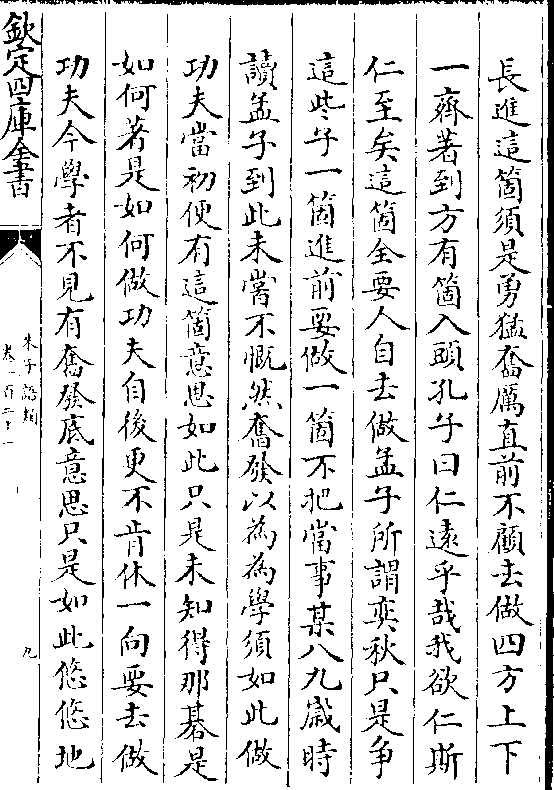 長進這箇須是勇猛奮厲直前不顧去做四方上下
一齊著到方有箇入頭孔子曰仁遠乎哉我欲仁斯
仁至矣這箇全要人自去做孟子所謂奕秋只是爭
這些子一箇進前要做一箇不把當事某八九歲時
讀孟子到此未嘗不慨然奮發以為為學須如此做
功夫當初便有這箇意思如此只是未知得那碁是
如何著是如何做功夫自後更不肯休一向要去做
功夫今學者不見有奮發底意思只是如此悠悠地
欽定四庫全書
朱子語類
卷一百二十一
九